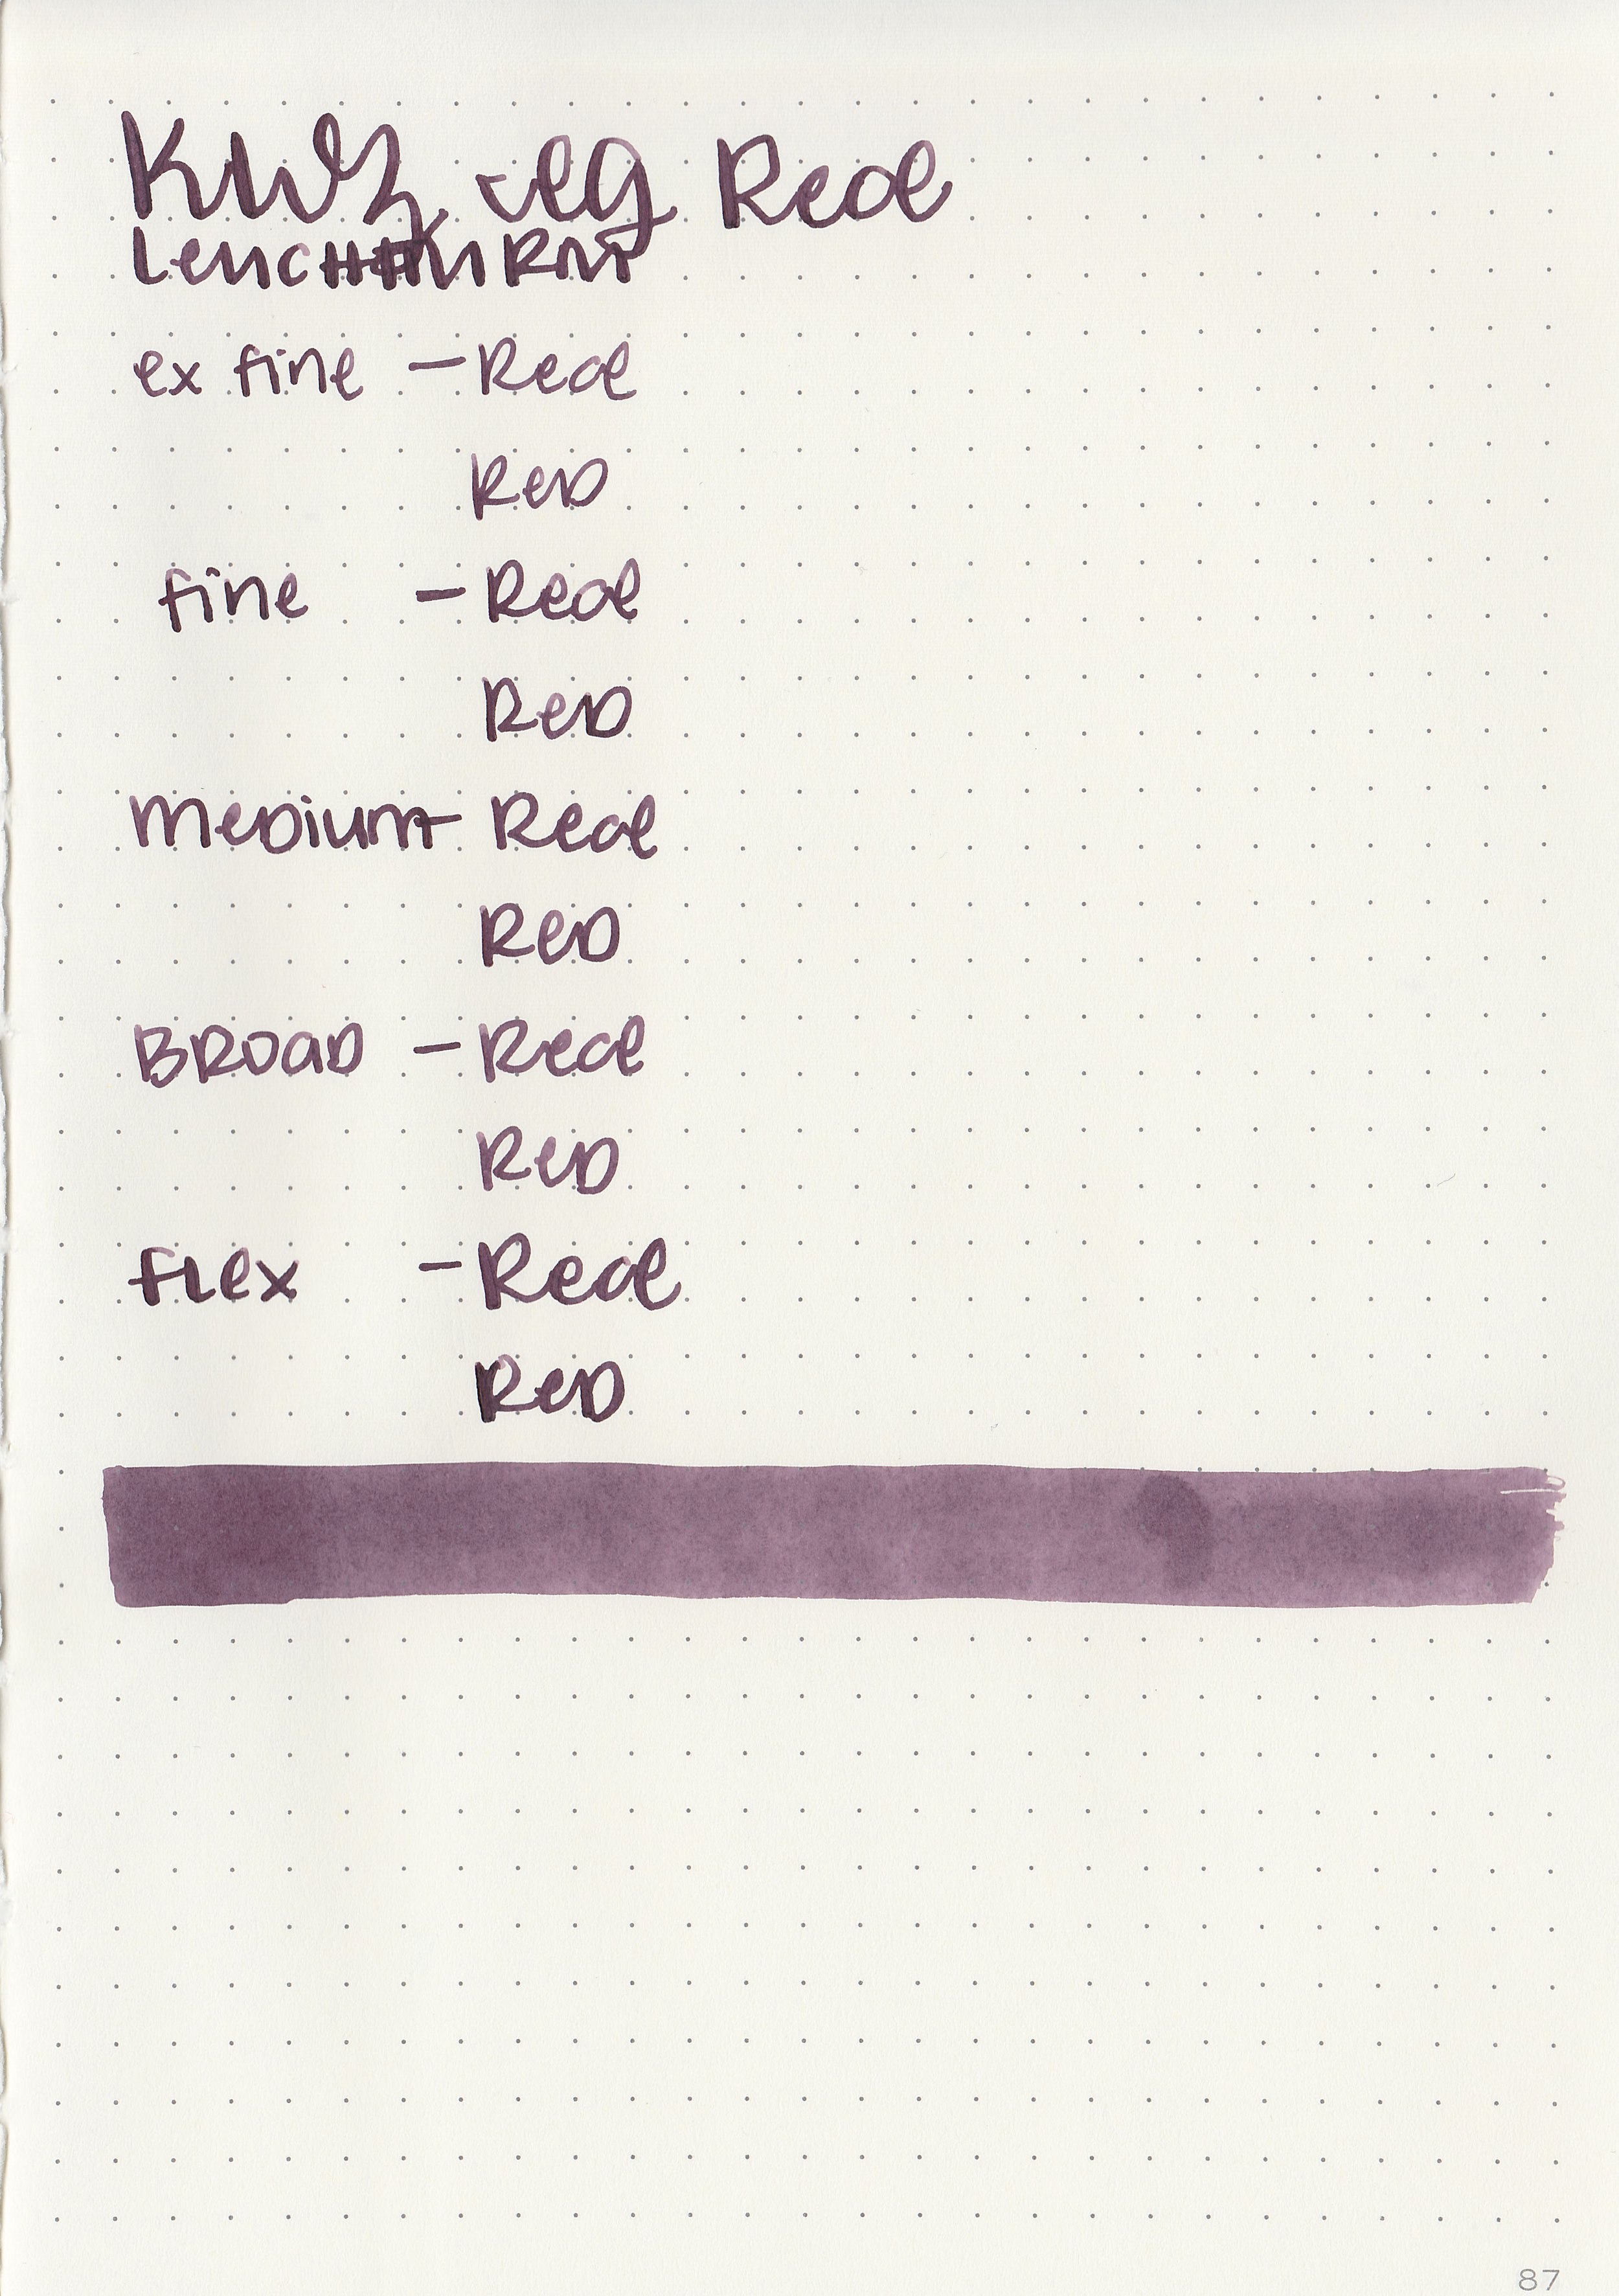 KWZ IG Red
LeucHttuRm
ex fine - Red
ReD
fine - Red
ReD
meDium - Red
ReD
BROaD - Red
ReD
fLex - Red
ReD
87